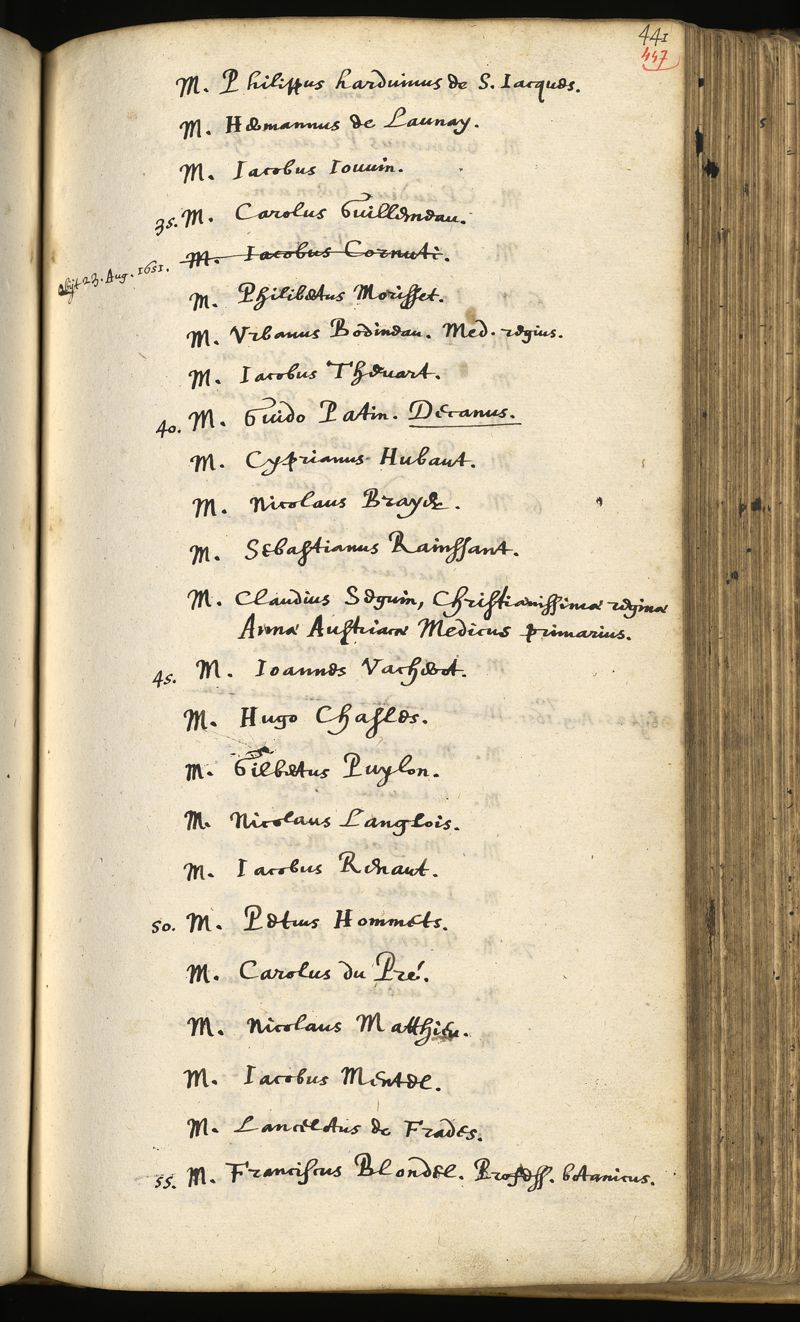 441
447
M. Philippus harduinus de S. Iacques.
M. Hermannus de Launay.
M. Iacobus Iouuin.
35. M. Carolus Guillemeau.
obijt 23. Aug. 1651. M. Iacobus Cornuti.
M. Philibertus Morisset.
M. Vrbanus Bodineau. Med. regius.
M. Iacobus Theuart.
40. M. Guido Patin. Decanus.
M. Cyprianus Hubaut.
M. Nicolaus Brayer.
M. Sebastianus Rainssant.
M. Claudius Seguin, Christianissimæ reginæ
Annæ Austriacæ Medicus primarius.
45. M. Ioannes Vacherot.
M. Hugo Chasles.
M. Gilbertus Puylon.
M. Nicolaus Langlois.
M. Iacobus Renaut.
50. M. Petrus Hommets.
M. Carolus du Pré.
M. Nicolaus Matthieu.
M. Iacobus Mentel.
M. Lancelotus de Frades.
55. M. Franciscus Blondel. Professs. botanicus.